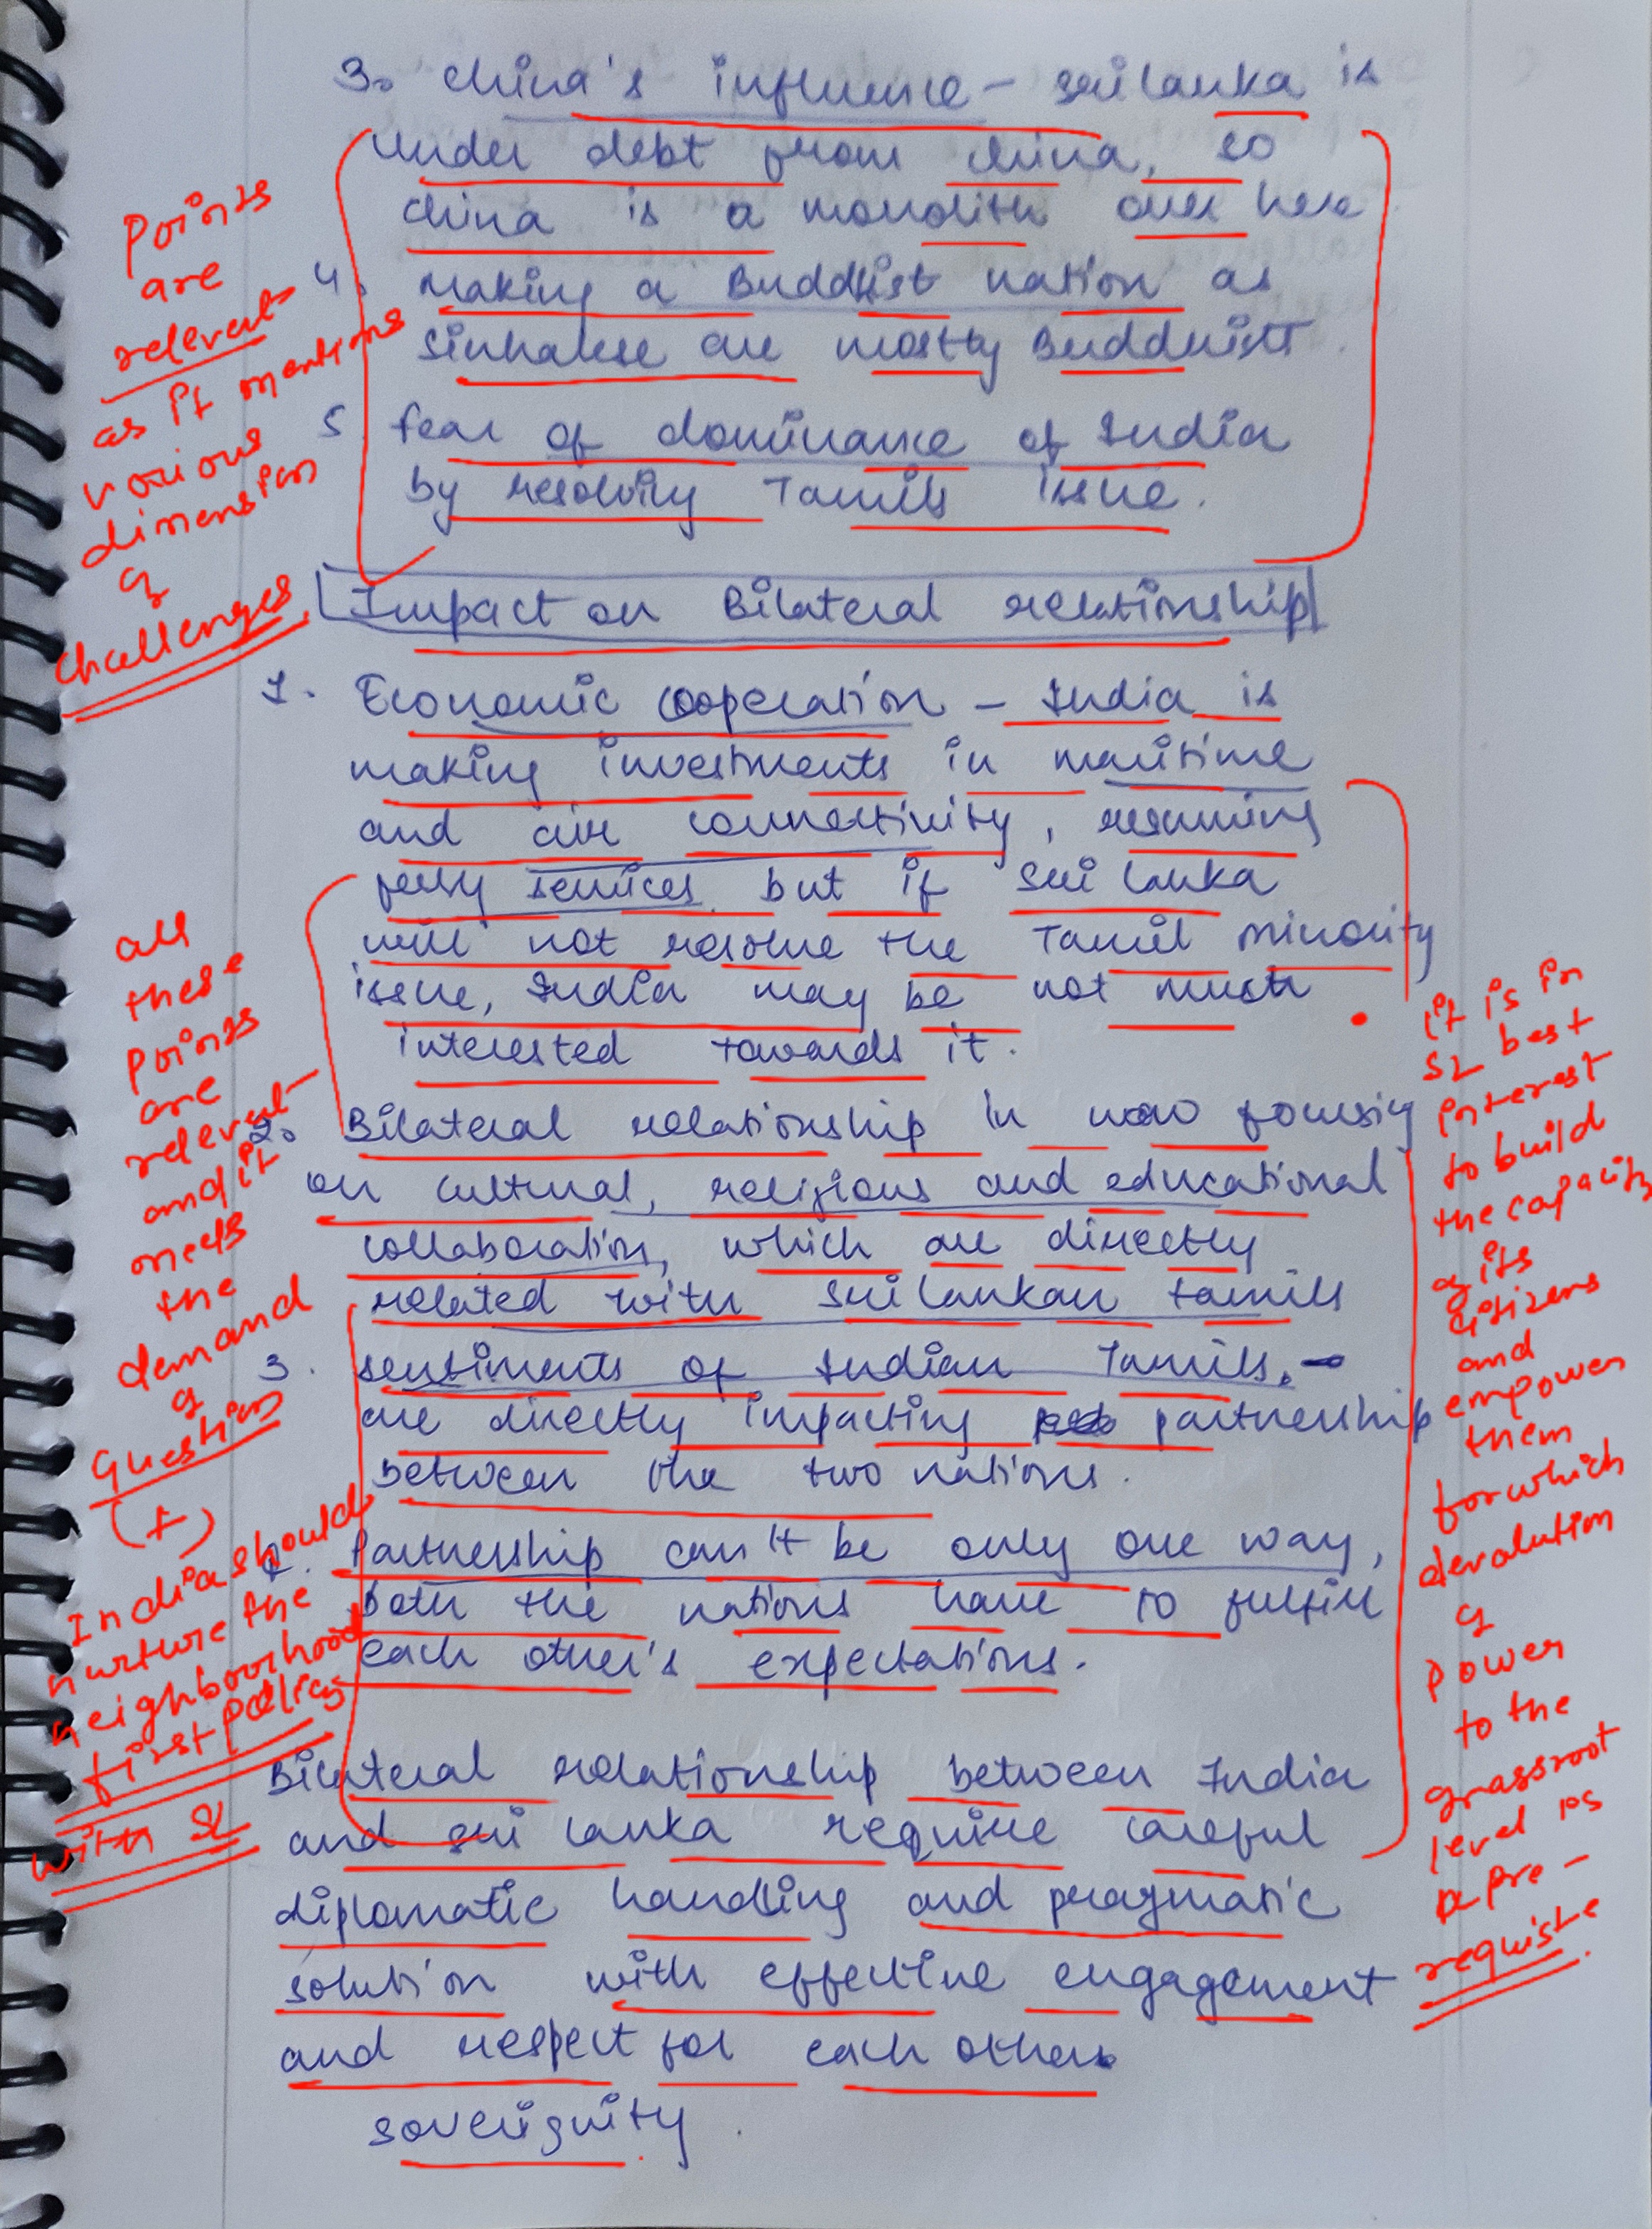 3. China's influence - Sri lanka is
under debt from China, so
China is a monolith over here
4. making a Buddhist nation as
Sinhalese are mostly Buddhists.
5. fear of dominance of India
by resolving Tamils issue.
Impact on Bilateral relationship
1. Economic cooperation - India is
making investments in maritime
and air connectivity, resuming
ferry services but if Sri lanka
will not resolve the Tamil minority
issue, India may be not much
interested towards it.
2. Bilateral relationship in now focusing
on cultural, religious and educational
collaboration, which are directly
related with Sri lankan tamils
3. sentiments of Indian Tamils, -
are directly impacting partnership
between the two nations.
Partnership can't be only one way,
both the nations have to fulfill
each other's expectations.
Bilateral relationship between India
and Sri lanka require careful
diplomatic handling and pragmatic
solution with effective engagement
and respect for each others
soverignity.
Points
are
relevent
as it mentions
various
dimension
of
challenges.
all
these
points
are
relevent
and it
meets
the
demand
of
question
(+)
India should
nurture the
neighbourhood
first policy
with SL
it is in
SL best
interest
to build
the capacity
of its
citizens
and
empower
them
for which
devolution
of
power
to the
grassroot
level is
a pre-
requiste.